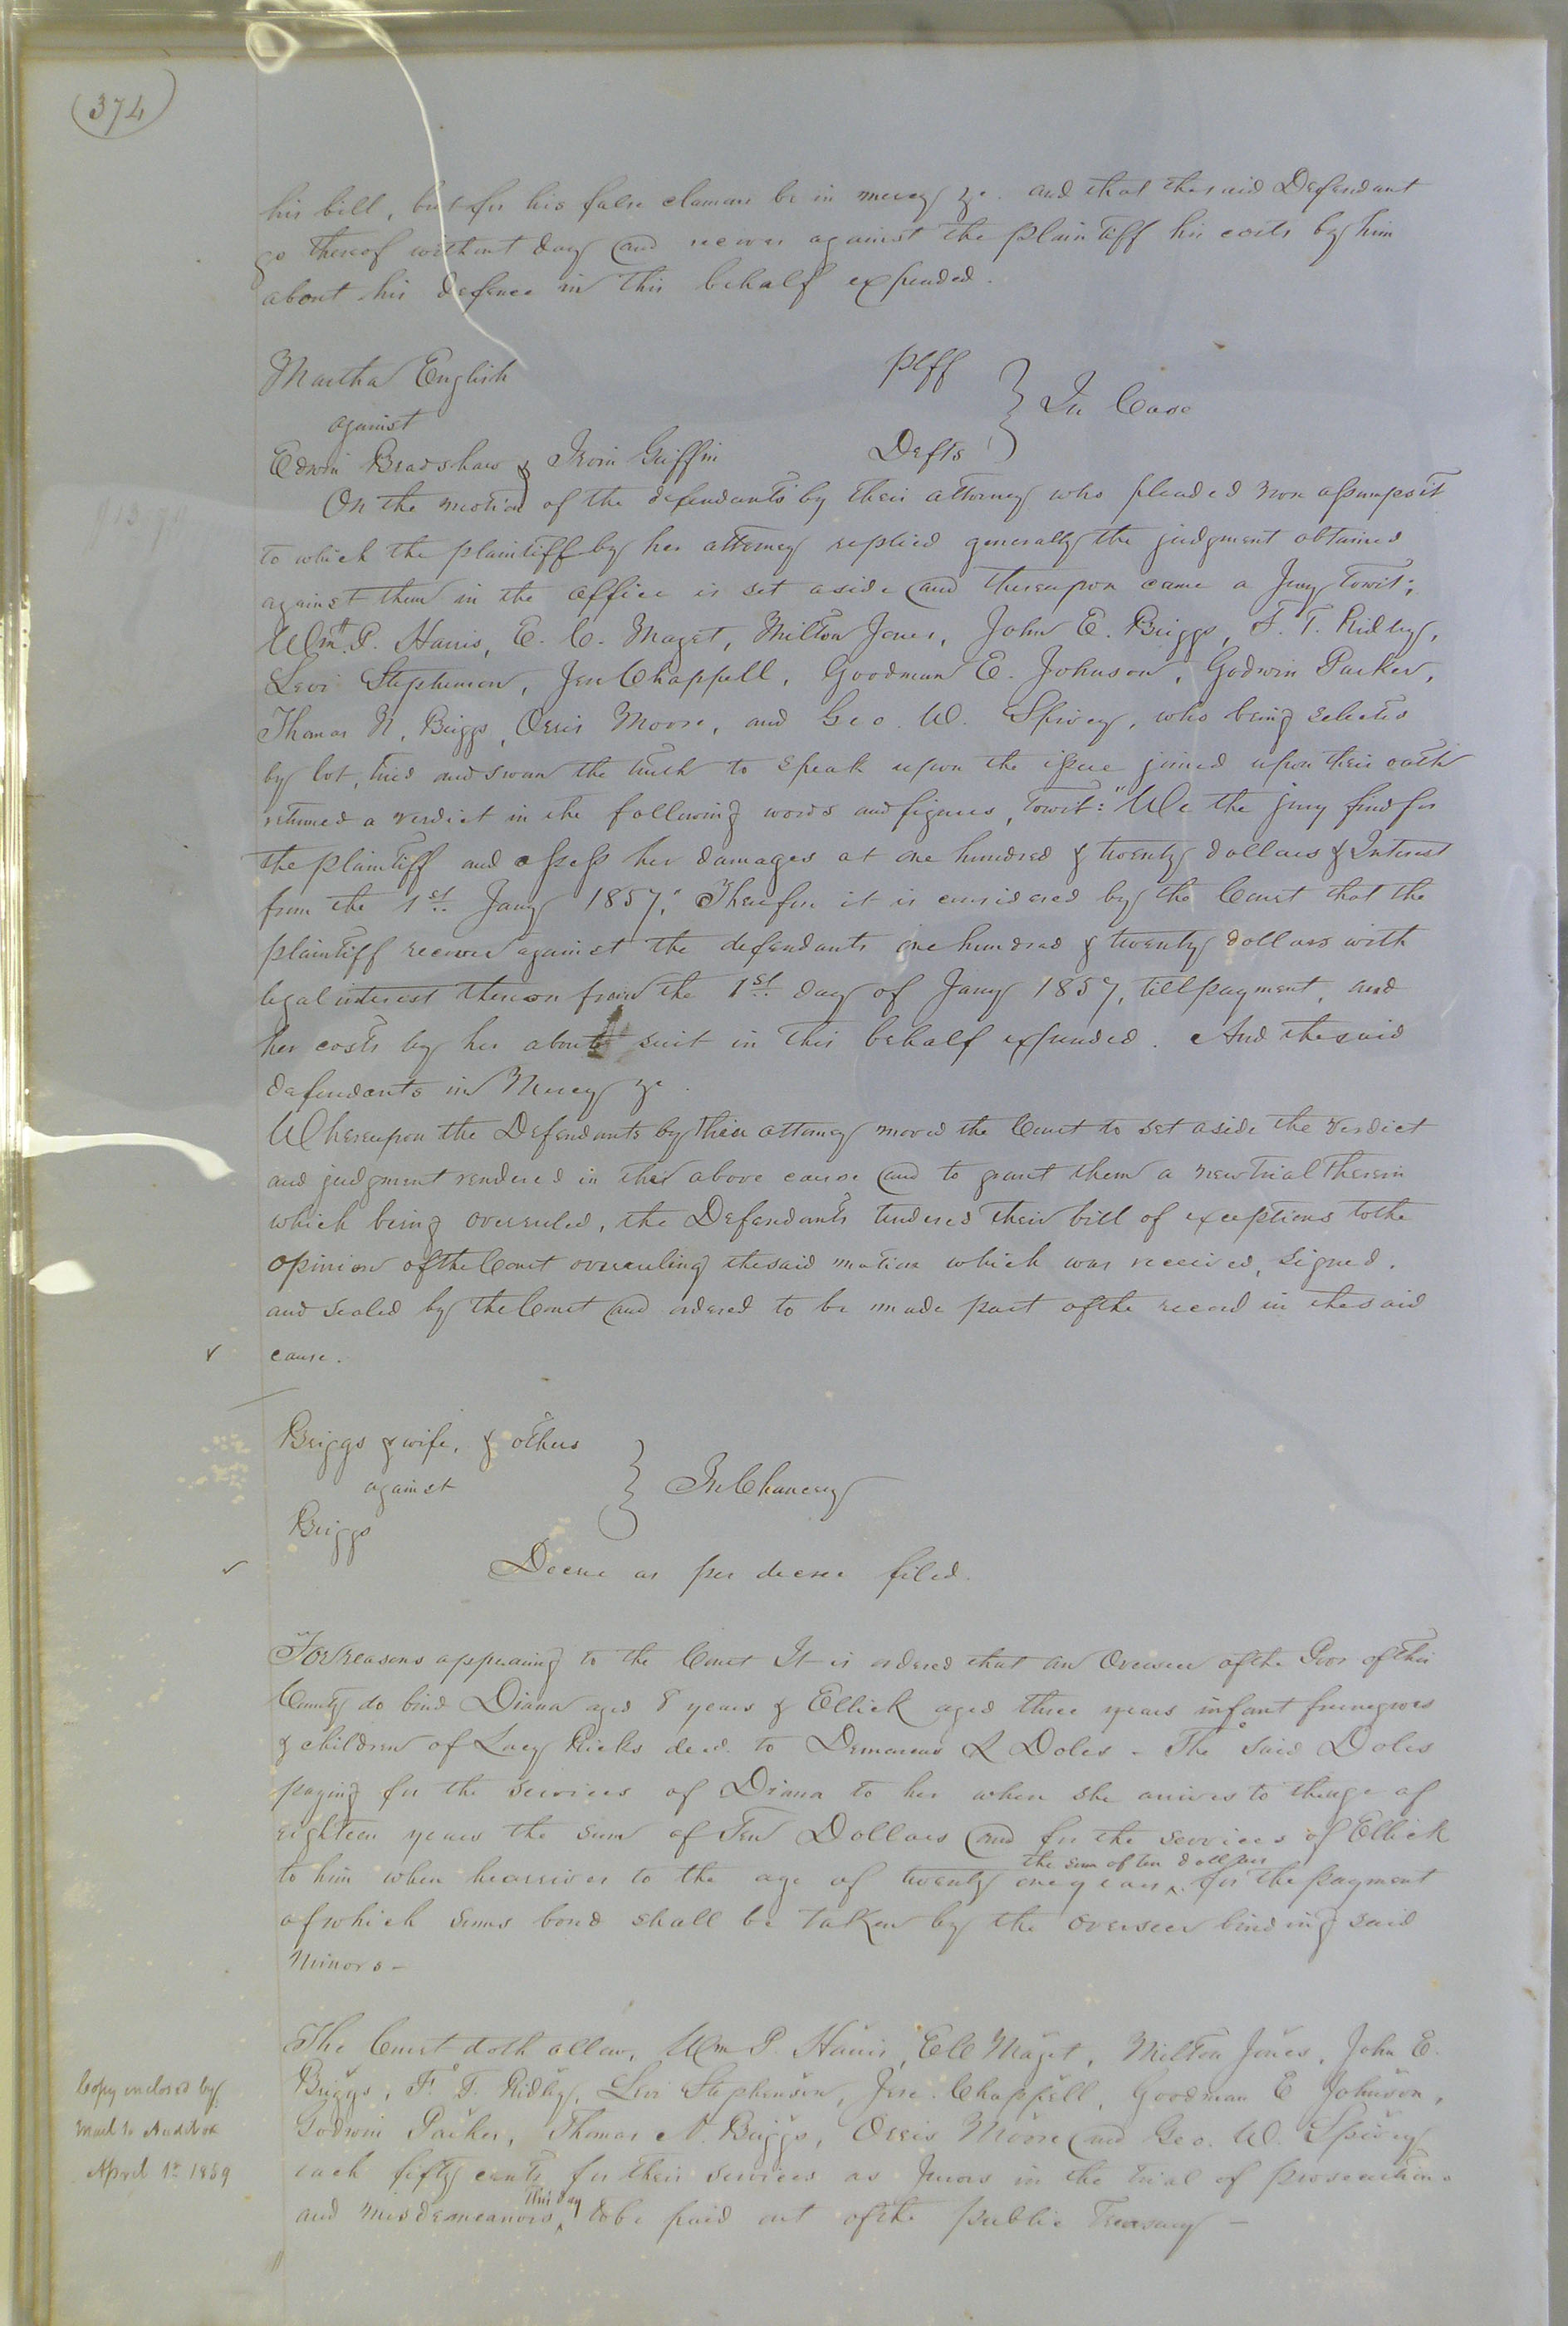 (374)
his bill, but for his false clamour be in mercy &c. and that the said Defendant
go thereof without day and recover against the plaintiff his costs by him
about his defence in this behalf expended.
Martha English plff
against } In Case
Edwin Bradshaw & Irvin Griffin Defts
On the motion of the defendants by their attorney who pleaded non assumpsit
to which the plaintiff by her attorney replied generally the judgment obtained
against them in the office is set aside and thereupon came a Jury towit;
Wm. P. Harris, E. C. Maget, Milton Jones, John E. Briggs, F. T. Ridley,
Levi Stephenson, Jere Chappell, Goodman E. Johnson, Godwin Parker,
Thomas N. Briggs, Orris Moore, and Geo. W. Spivey, who being selected
by lot, tried and sworn the truth to speak upon the issue joined upon their oath
returned a verdict in the following words and figures, towit: "We the jury find for
the plaintiff and assess her damages at one hundred & twenty dollars & Interest
from the 1st. Jany 1857." Therefore it is considered by the Court that the
plaintiff recover against the defendants one hundred & twenty dollars with
legal interest thereon from the 1st. day of Jany 1857, till payment, and
her costs by her about suit in this behalf expended. And the said
defendants in Mercy &c.
Whereupon the Defendants by their attorney moved the Court to set aside the verdict
and judgment rendered in this above cause and to grant them a new trial therein
which being overruled, the Defendants tendered their bill of exceptions to the
opinion of the Court overruling the said motion which was received, signed,
and sealed by the Court and ordered to be made part of the record in the said
cause.
Briggs & wife, & others
against } In Chancery
Briggs
Decree as per decree filed.
For reasons appearing to the Court It is ordered that an Overseer of the Poor of this
County do bind Diana aged 8 years & Ellick aged three years infant free negroes
& children of Lucy Ricks decd. to Demarcus L Doles - The said Doles
paying for the services of Diana to her when she arrives to the age of
eighteen years the sum of Ten Dollars and for the services of Ellick
the sum of ten dollars
to him when he arrives to the age of twenty one years ^. for the payment
of which sums bond shall be taken by the overseer binding said
minors -
The Court doth allow, Wm P. Harris, E C Maget, Milton Jones, John E.
Briggs, F. T. Ridley, Levi Stephenson, Jere. Chappell, Goodman E Johnson,
Godwin Parker, Thomas N. Briggs, Orris Moore and Geo. W. Spivey
each fifty cents for their services as Jurors in the trial of prosecutions
this day
and misdemeanors ^ to be paid out of the public Treasury -
Copy enclosed by
mail to Auditor
April 1st 1859